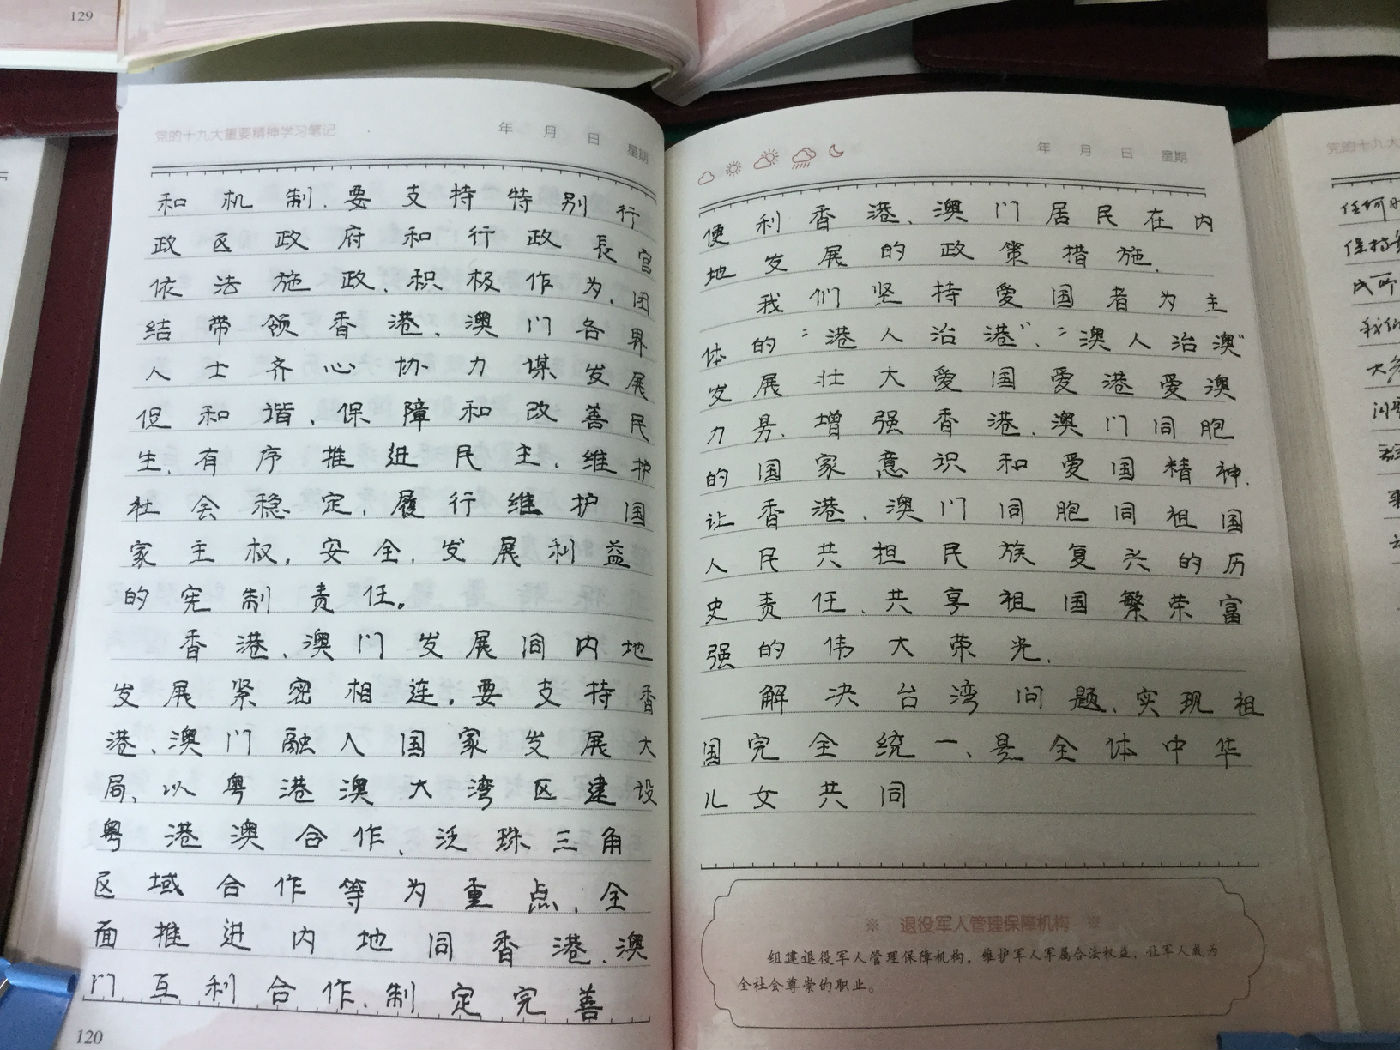 129
党的十九大重要精神学习笔记
年 月 日 星期
和机制.要支持特别行
政区政府和行政長官
依法施政、积极作为,团
结带领香港、澳门各界
人士齐心协力谋发展
促和谐,保障和改善民
生,有序推进民主,维护
社会稳定,履行维护国
家主权,安全,发展利益
的宪制责任。
香港、澳门发展同内地
发展紧密相连,要支持香
港、澳门融入国家发展大
局、以粤港澳大湾区建设
粤港澳合作、泛珠三角
区域合作等为重点,全
面推进内地同香港、澳
门互利合作、制定完善
120
年 月 日 星期
便利香港、澳门居民在内
地发展的政策措施.
我们坚持爱国者为主
体的“港人治港”、“澳人治澳”
发展壮大爱国爱港爱澳
力量、增强香港、澳门同胞
的国家意识和爱国精神,
让香港、澳门同胞同祖国
人民共担民族复兴的历
史责任、共享祖国繁荣富
强的伟大荣光.
解决台湾问题、实现祖
国完全统一、是全体中华
儿女共同
※ 退役军人管理保障机构 ※
组建退役军人管理保障机构,维护军人军属合法权益,让军人成为
全社会尊崇的职业。
党的十九大
任何
保持